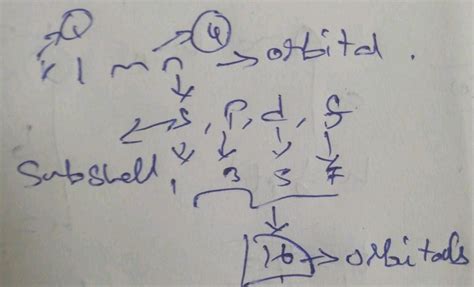 4
orbital.
s, p, d, f
Subshell, 3 5 7
16 → orbitals